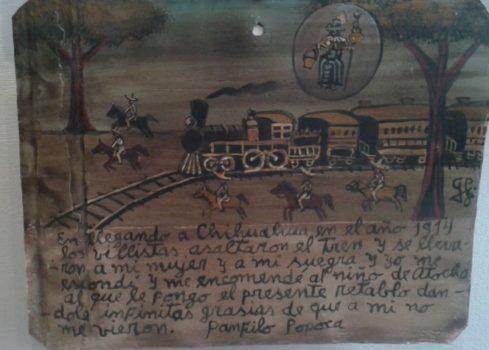 GF
En llegando a Chihuahua en el año 1914
los villistas asaltaron el Tren y se lleva-
ron a mi mujer y a mi suegra y yo me
escondi y me encomendé al niño de atocha
al que le pongo el presente retablo dan-
dole infinitas grasias de que a mi no
me vieron. Panfilo Popoca